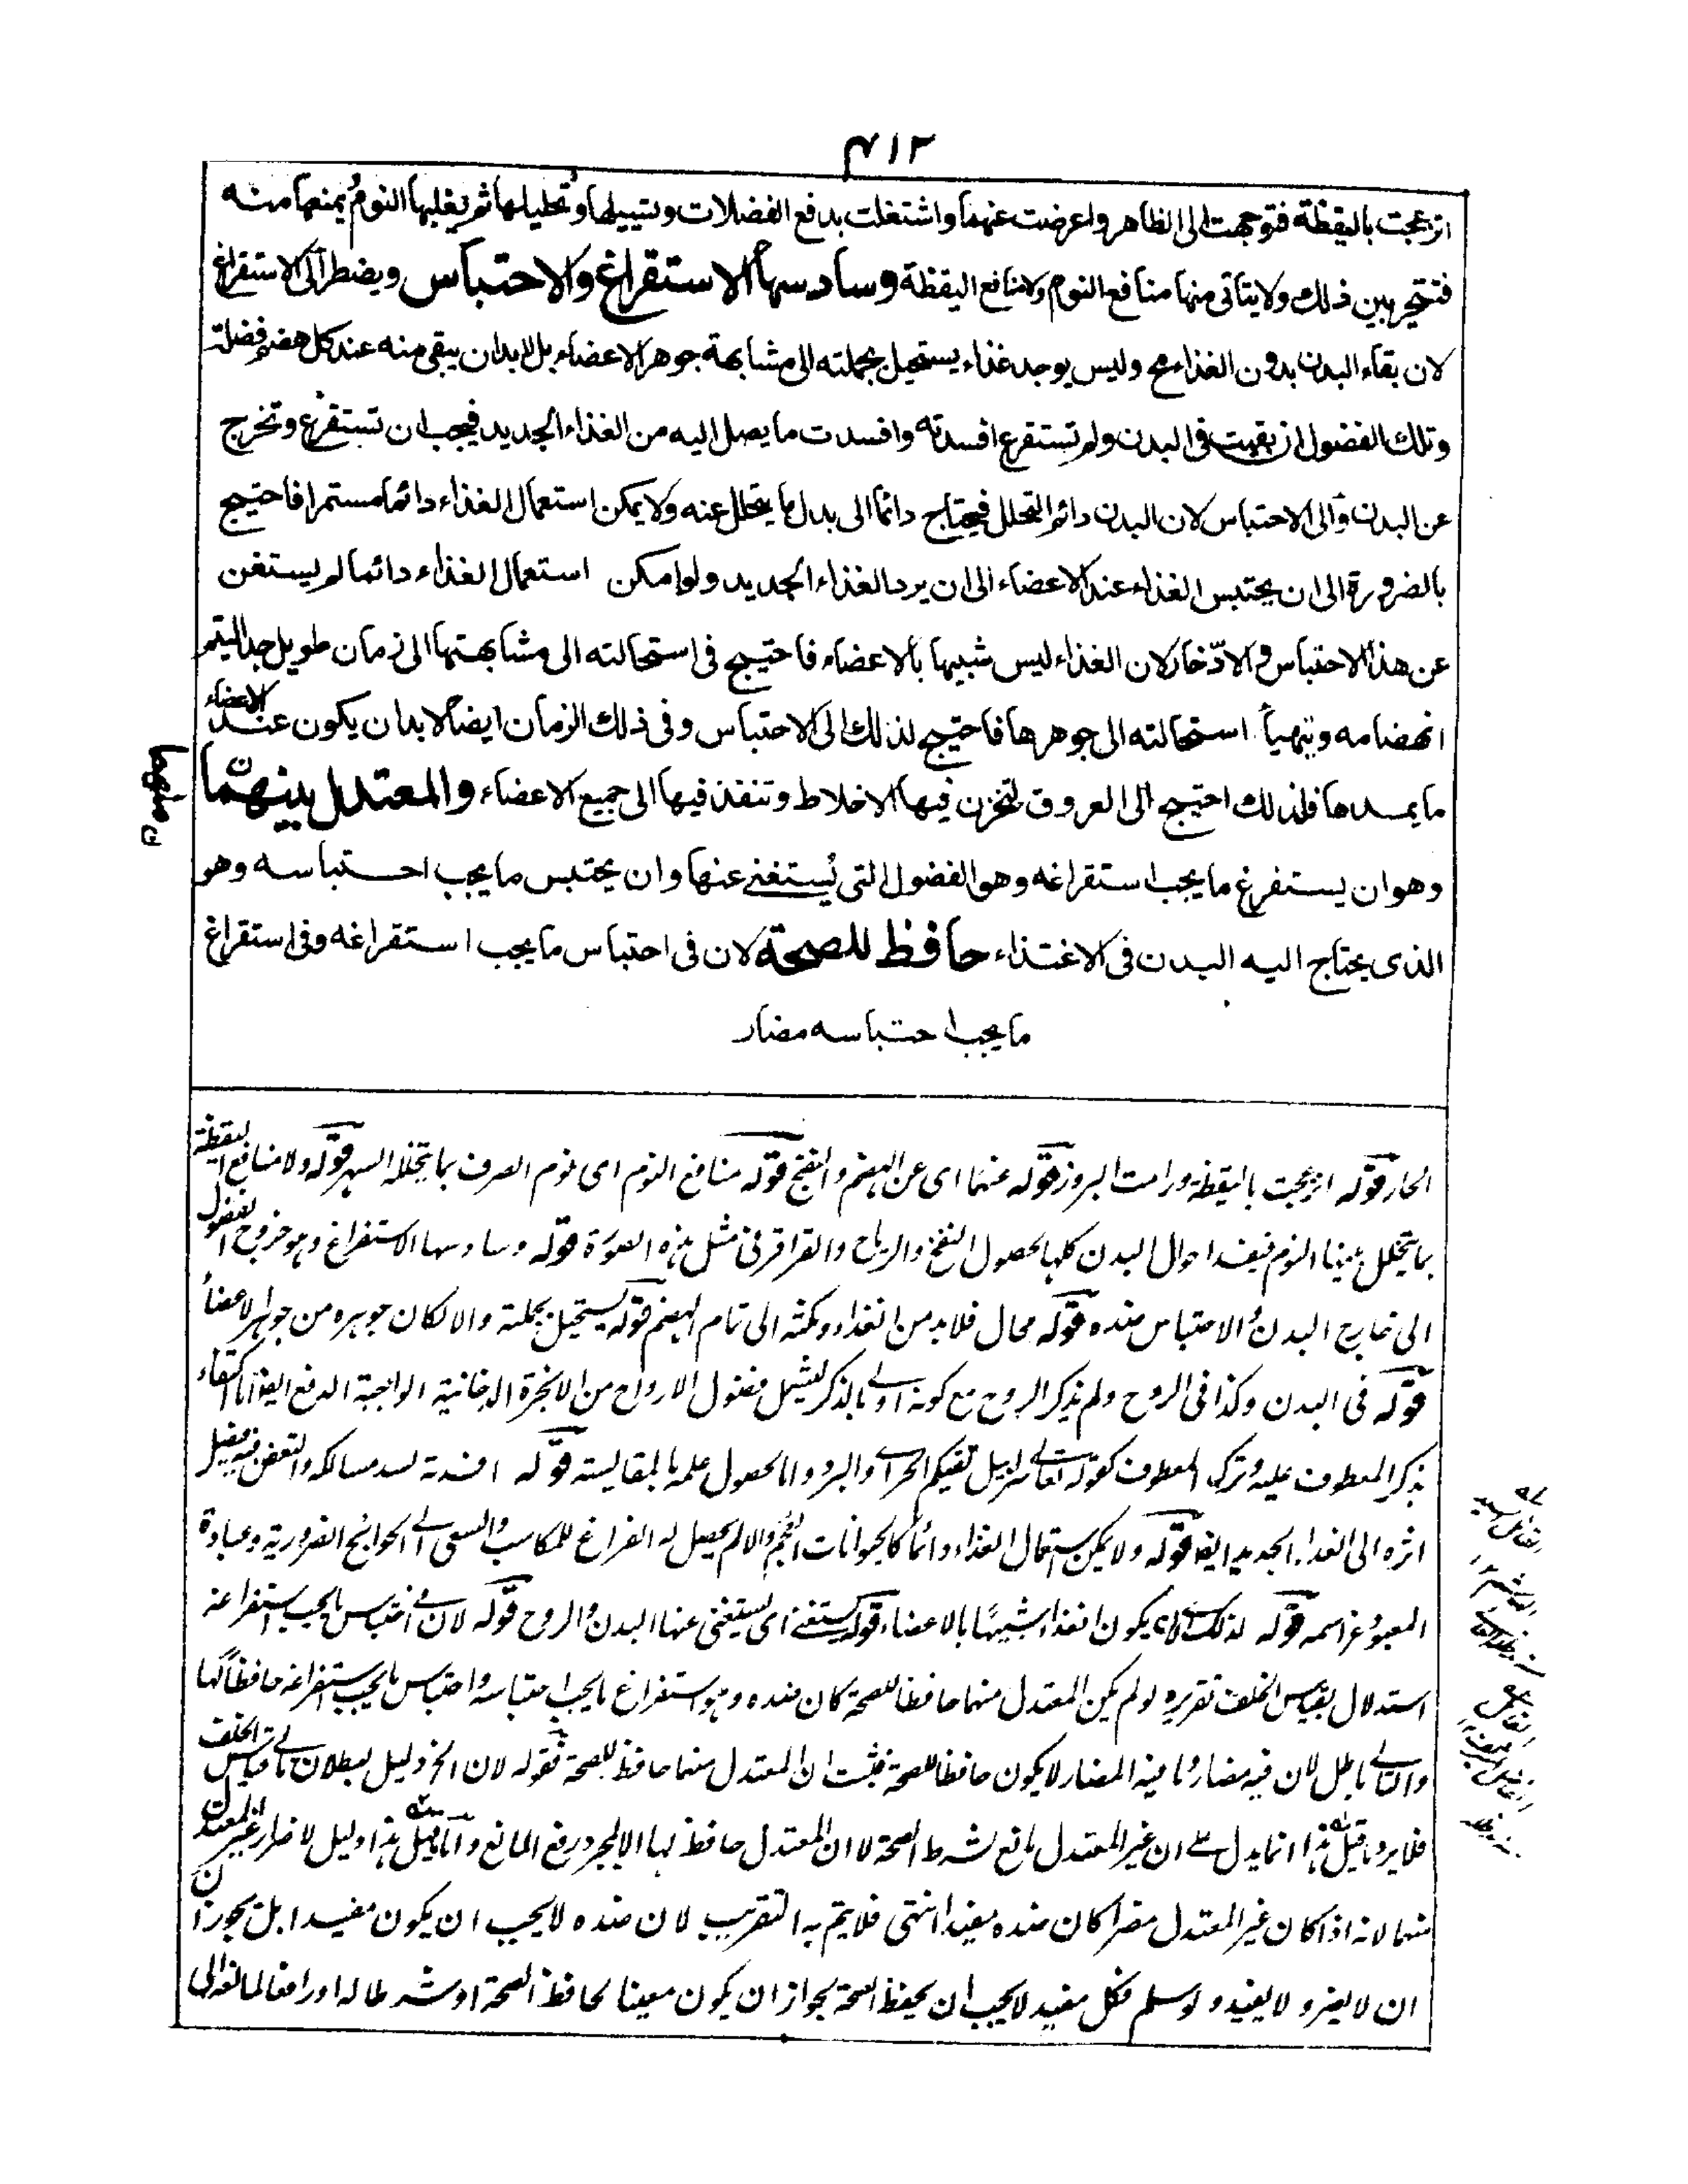 ٤١٢
انزعجت باليقظة فتوجهت الى الظاهر واعرضت عنهما واشتغلت بدفع الفضلات وتسييلها وتحليلها ثم يغلبها النوم يمنعها منه
فتتحير بين ذلك ولا يتاتى منها منافع النوم ولا منافع اليقظة وسادسها الاستفراغ والاحتباس ويضطر الى الاستفراغ
لان بقاء البدن بدون الغذاء مح وليس يوجد غذاء يستحيل بجملته الى مشابهة جوهر الاعضاء بل لابد ان يبقى منه عند كل هضم فضلة
وتلك الفضول ان بقيت فى البدن ولم تستفرغ افسدته وافسدت ما يصل اليه من الغذاء الجديد فيجب ان تستفرغ وتخرج
عن البدن والى الاحتباس لان البدن دائم التحلل فيحتاج دائما الى بدل ما يتحلل عنه ولا يمكن استعمال الغذاء دائما مستمرا فاحتيج
بالضرورة الى ان يحتبس الغذاء عند الاعضاء الى ان يرد الغذاء الجديد ولو امكن استعمال الغذاء دائما لم يستغن
عن هذا الاحتباس والادّخار لان الغذاء ليس شبيها بالاعضاء فاحتيج فى استحالته الى مشابهتها الى زمان طويل جدا ليتم
انهضامه ويتهيأ استحالته الى جوهرها فاحتيج لذلك الى الاحتباس وفى ذلك الزمان ايضا لابد ان يكون عند الاعضاء
ما يمدها فلذلك احتيج الى العروق لتخزن فيها الاخلاط وتنفذ فيها الى جميع الاعضاء والمعتدل بينهما
منهما ن
وهو ان يستفرغ ما يجب استفراغه وهو الفضول التى يُستغنى عنها وان يحتبس ما يجب احتباسه وهو
الذى يحتاج اليه البدن فى الاغتذاء حافظ للصحة لان فى احتباس ما يجب استفراغه وفى استفراغ
ما يجب احتباسه مضار
الحار قوله انزعجت باليقظة ورامت البروز قوله عنهما اى عن الهضم والنضج قوله منافع النوم اى نوم الصرف بما يتخلله السهر قوله ولا منافع اليقظة
بما يتخلل بينها النوم فيفسد احوال البدن كلها لحصول النفخ والرياح والقراقر فى مثل هذه الصورة قوله وسادسها الاستفراغ وهو خروج الفضول
الى خارج البدن والاحتباس ضده قوله محال فلابد من الغذاء ومكثه الى تمام الهضم قوله يستحيل بجملته والا لكان جوهره من جواهر الاعضاء
قوله فى البدن وكذا فى الروح ولم يذكر الروح مع كونه اولى بالذكر ليشمل فضول الارواح من الابخرة الدخانية الواجبة الدفع ايضا اكتفاء
بذكر المعطوف عليه وترك المعطوف كقوله تعالى سرابيل تقيكم الحر اى والبرد واما لحصول علمه بالمقايسة قوله افسدته لسد مسالكه والتعفن فيه فيصل
اثره الى الغذاء الجديد ايضا قوله ولا يمكن استعمال الغذاء دائما كالحيوانات العجم والا لم يحصل له الفراغ للمكاسب والسعى الى الحوائج الضرورية وعبادة
المعبود عز اسمه قوله لذلك اى لان لا يكون الغذاء شبيها بالاعضاء قوله يستغنى اى يستغنى عنها البدن والروح قوله لان فى احتباس ما يجب استفراغه
استدلال بقياس الخلف تقريره لو لم يكن المعتدل منهما حافظا للصحة كان ضده وهو استفراغ ما يجب احتباسه واحتباس ما يجب استفراغه حافظا لها
والتالى باطل لان فيه مضار وما فيه المضار لا يكون حافظا للصحة فثبت ان المعتدل منهما حافظ للصحة فقوله لان الخ دليل لبطلان تالى قياس الخلف
فلا يرد ما قيل هذا انما يدل على ان غير المعتدل مانع لشرط الصحة لا ان المعتدل حافظ لها الا لمجرد رفع المانع واما ما قيل هذا دليل لاضرار غير المعتدل
منهما لانه اذا كان غير المعتدل مضرا كان ضده مفيدا انتهى فلا يتم به التقريب لان ضده لا يجب ان يكون مفيدا بل يجوز
ان لا يضر ولا يفيد ولو سلم فكل مفيد لا يجب ان يحفظ الصحة بجواز ان يكون معينا لحافظ الصحة او شرطا له او رافعا لمانع الى